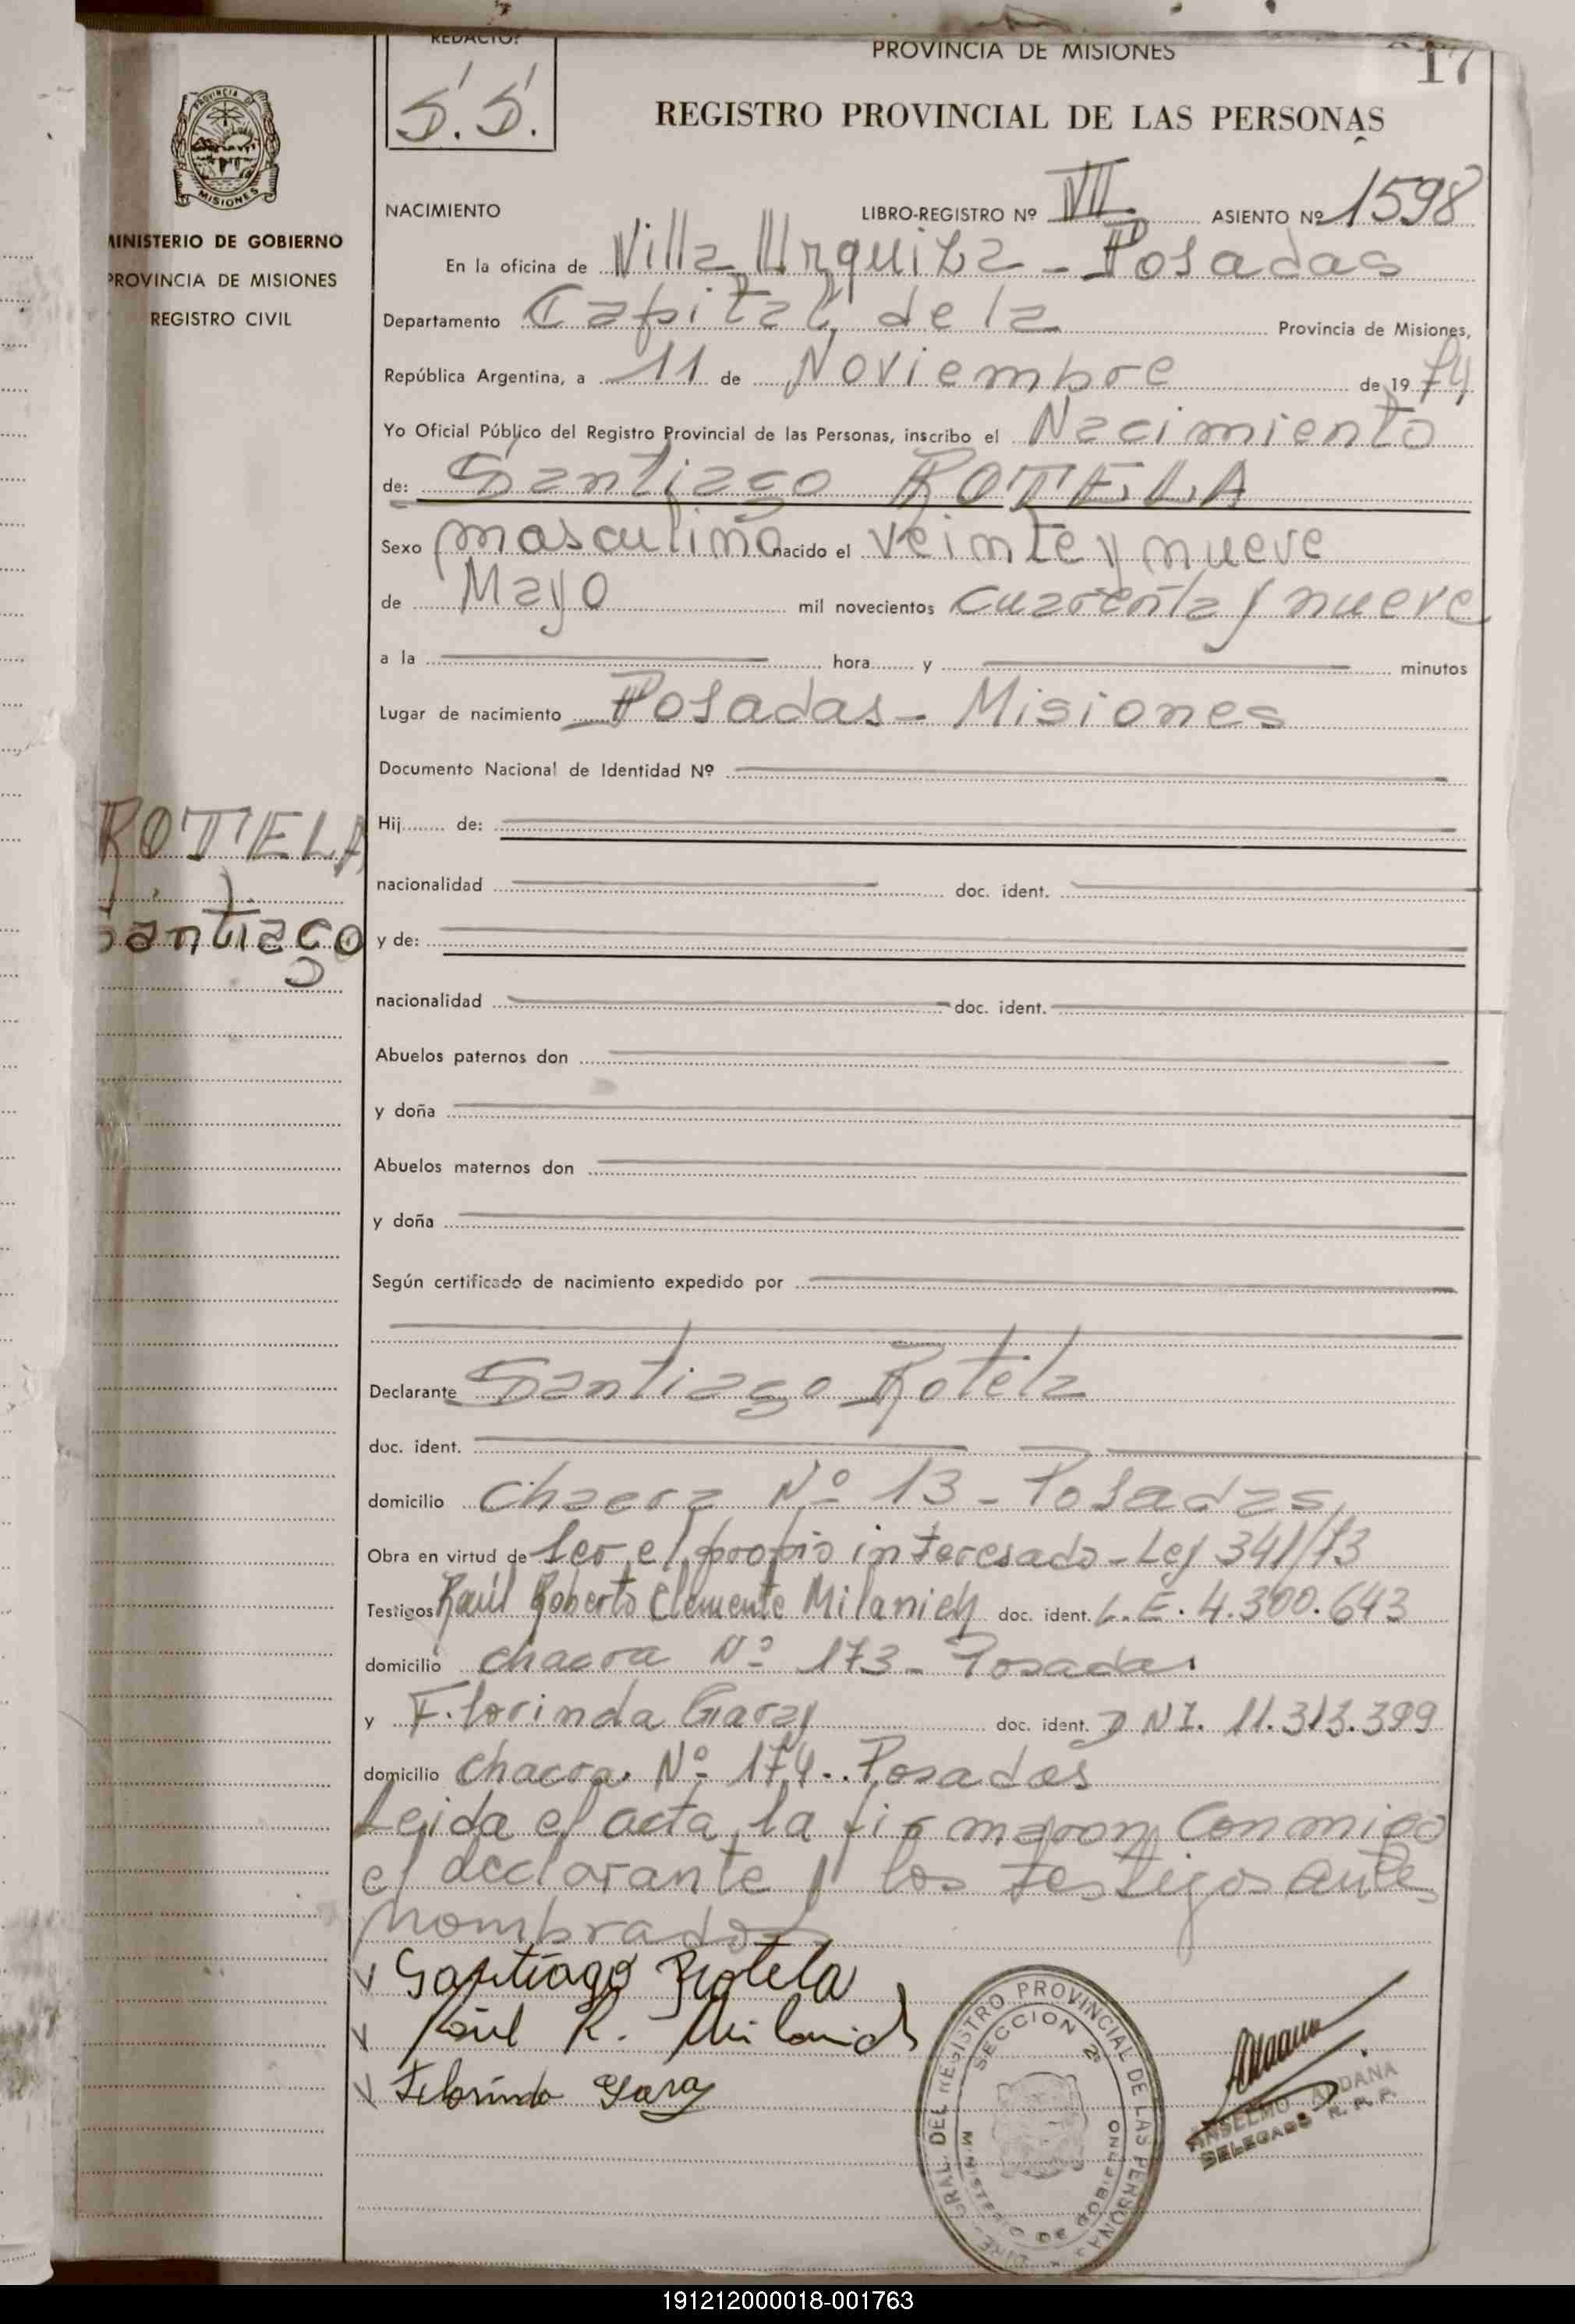 REDACTO:
S. S.
PROVINCIA DE MISIONES
17
REGISTRO PROVINCIAL DE LAS PERSONAS
MISIONES
MINISTERIO DE GOBIERNO
PROVINCIA DE MISIONES
REGISTRO CIVIL
NACIMIENTO LIBRO-REGISTRO Nº VII ASIENTO Nº 1598
En la oficina de Villa Urquiza - Posadas
Departamento Capital de la Provincia de Misiones,
República Argentina, a 11 de Noviembre de 1974
Yo Oficial Público del Registro Provincial de las Personas, inscribo el Nacimiento
de: Santiago ROTELA
Sexo masculino nacido el veinte y nueve
de Mayo mil novecientos cuarenta y nueve
a la hora y minutos
Lugar de nacimiento Posadas - Misiones
Documento Nacional de Identidad Nº
Hij de:
ROTELA
nacionalidad doc. ident.
Santiago
y de:
nacionalidad doc. ident.
Abuelos paternos don
y doña
Abuelos maternos don
y doña
Según certificado de nacimiento expedido por
Declarante Santiago Rotela
doc. ident.
domicilio Chacra Nº 13 - Posadas
Obra en virtud de Ser el propio interesado - Ley 341/73
Testigos Raúl Roberto Clemente Milanich doc. ident. L.E. 4.300.643
domicilio chacra Nº 173 - Posadas
y Florinda Garay doc. ident. DNI. 11.313.399
domicilio chacra Nº 174 - Posadas
Leida el acta, la firmaron conmigo
el declarante y los testigos ante
nombrados
Santiago Rotela
Raúl R. Milanich
Florinda Garay
DIRE. GRAL. DEL REGISTRO PROVINCIAL DE LAS PERSONAS
SECCION 2ª
MINISTERIO DE GOBIERNO
ANSELMO ALDANA
DELEGADO R. P. P.
191212000018-001763